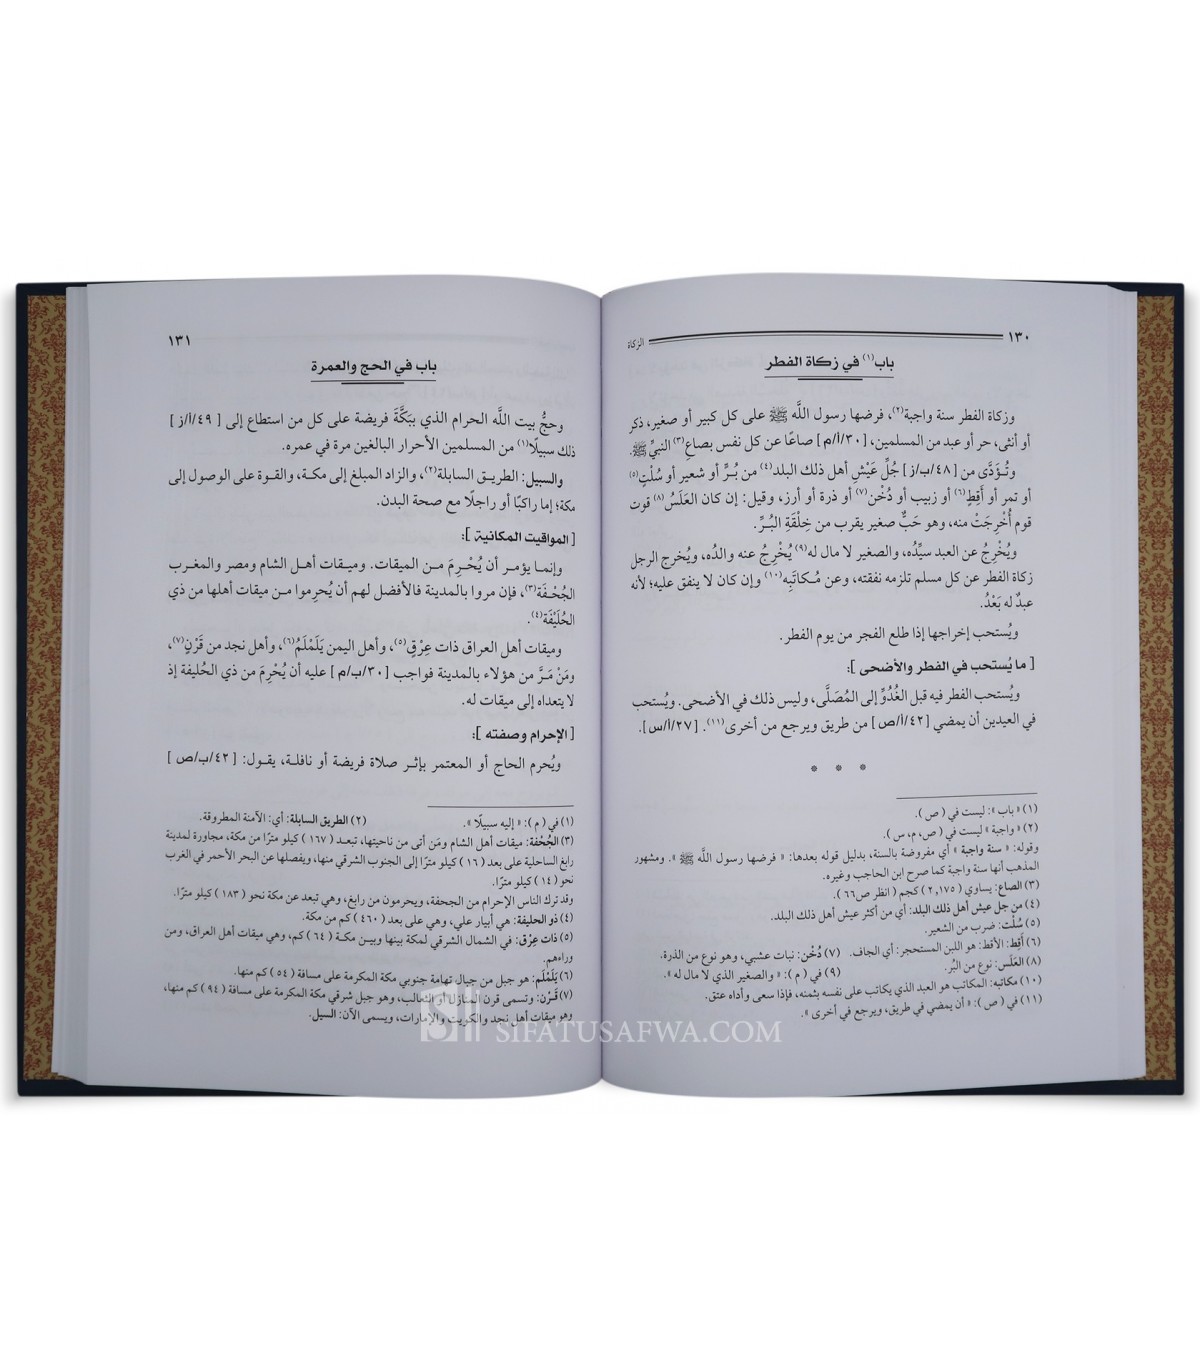 ١٣٠
الزكاة
باب(١) في زكاة الفطر
وزكاة الفطر سنة واجبة(٢)، فرضها رسول اللَّه ﷺ على كل كبير أو صغير، ذكر
أو أنثى، حر أو عبد من المسلمين، [٣٠/أ/م] صاعًا عن كل نفس بصاعِ(٣) النبيِّ ﷺ.
وتُؤَدَّى من [٤٨/ب/ز] جُلِّ عَيْشِ أهل ذلك البلد(٤) من بُرٍّ أو شعير أو سُلْتٍ(٥)
أو تمر أو أَقِطٍ(٦) أو زبيب أو دُخْن(٧) أو ذرة أو أرز، وقيل: إن كان العَلَسُ(٨) قوت
قوم أُخْرِجَتْ منه، وهو حَبٌّ صغير يقرب من خِلْقَةِ البُرِّ.
ويُخْرِجُ عن العبد سيِّدُه، والصغير لا مال له(٩) يُخْرِجُ عنه والدُه، ويُخرج الرجل
زكاة الفطر عن كل مسلم تلزمه نفقته، وعن مُكاتَبِه(١٠) وإن كان لا ينفق عليه؛ لأنه
عبدٌ له بَعْدُ.
ويُستحب إخراجها إذا طلع الفجر من يوم الفطر.
[ ما يُستحب في الفطر والأضحى ]:
ويُستحب الفطر فيه قبل الغُدُوِّ إلى المُصَلَّى، وليس ذلك في الأضحى. ويُستحب
في العيدين أن يمضي [٤٢/أ/ص] من طريق ويرجع من أخرى(١١). [٢٧/أ/س].
* * *
(١) « باب »: ليست في ( ص ).
(٢) « واجبة » ليست في ( ص، م، س ).
وقوله: « سنة واجبة » أي مفروضة بالسنة، بدليل قوله بعدها: « فرضها رسول اللَّه ﷺ ». ومشهور
المذهب أنها سنة واجبة كما صرح ابن الحاجب وغيره.
(٣) الصاع: يساوي ( ٢,١٧٥ ) كجم ( انظر ص٦٦ ).
(٤) من جل عيش أهل ذلك البلد: أي من أكثر عيش أهل ذلك البلد.
(٥) سُلْت: ضرب من الشعير.
(٦) أَقِط: الأقط: هو اللبن المستحجر: أي الجاف. (٧) دُخْن: نبات عشبي، وهو نوع من الذرة.
(٨) العَلَس: نوع من البُر. (٩) في ( م ): « والصغير الذي لا مال له ».
(١٠) مكاتبه: المكاتب هو العبد الذي يكاتب على نفسه بثمنه، فإذا سعى وأداه عتق.
(١١) في ( ص ): « أن يمضي في طريق، ويرجع في أخرى ».
١٣١
باب في الحج والعمرة
وحجُّ بيت اللَّه الحرام الذي ببَكَّةَ فريضة على كل من استطاع إلى [٤٩/أ/ز]
ذلك سبيلًا(١) من المسلمين الأحرار البالغين مرة في عمره.
والسبيل: الطريق السابلة(٢)، والزاد المبلغ إلى مكة، والقوة على الوصول إلى
مكة؛ إما راكبًا أو راجلًا مع صحة البدن.
[ المواقيت المكانية ]:
وإنما يؤمر أن يُحْرِمَ من الميقات. وميقات أهل الشام ومصر والمغرب
الجُحْفَة(٣)، فإن مروا بالمدينة فالأفضل لهم أن يُحرِموا من ميقات أهلها من ذي
الحُلَيْفَة(٤).
وميقات أهل العراق ذات عِرْقٍ(٥)، وأهل اليمن يَلَمْلَمُ(٦)، وأهل نجد من قَرْنٍ(٧)،
ومَنْ مَرَّ من هؤلاء بالمدينة فواجب [٣٠/ب/م] عليه أن يُحْرِمَ من ذي الحُليفة إذ
لا يتعداه إلى ميقات له.
[ الإحرام وصفته ]:
ويُحرم الحاج أو المعتمر بإثر صلاة فريضة أو نافلة، يقول: [٤٢/ب/ص]
(١) في ( م ): « إليه سبيلًا ». (٢) الطريق السابلة: أي: الآمنة المطروقة.
(٣) الجُحْفة: ميقات أهل الشام ومَن أتى من ناحيتها، تبعد ( ١٦٧ ) كيلو مترًا من مكة، مجاورة لمدينة
رابغ الساحلية على بعد ( ١٦ ) كيلو مترًا إلى الجنوب الشرقي منها، ويفصلها عن البحر الأحمر في الغرب
نحو ( ١٤ ) كيلو مترًا.
وقد ترك الناس الإحرام من الجحفة، ويحرمون من رابغ، وهي تبعد عن مكة نحو ( ١٨٣ ) كيلو مترًا.
(٤) ذو الحليفة: هي أبيار علي، وهي على بعد ( ٤٦٠ ) كم من مكة.
(٥) ذات عِرْق: في الشمال الشرقي لمكة بينها وبين مكة ( ٦٤ ) كم، وهي ميقات أهل العراق، ومن
وراءهم.
(٦) يَلَمْلَم: هو جبل من جبال تهامة جنوبي مكة المكرمة على مسافة ( ٥٤ ) كم منها.
(٧) قَرْن: وتسمى قرن المنازل أو الثعالب، وهو جبل شرقي مكة المكرمة على مسافة ( ٩٤ ) كم منها،
وهو ميقات أهل نجد والكويت والإمارات، ويسمى الآن: السيل.
SIFATUSAFWA.COM